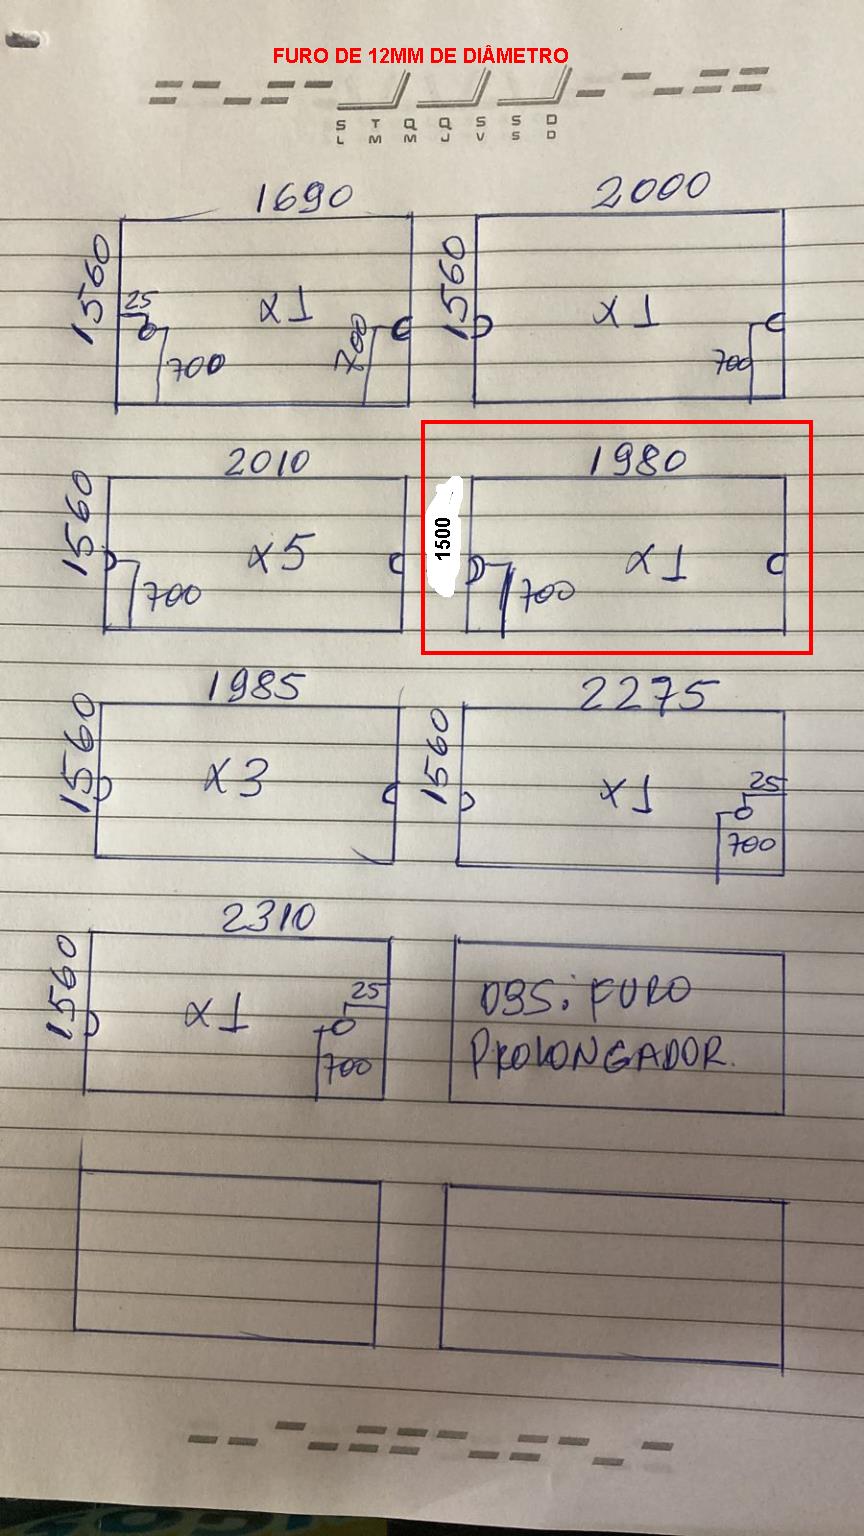 FURO DE 12MM DE DIÂMETRO
S T Q Q S S D
L M M J V S D
1690
1560
25
x1
700
700
2000
1560
x1
700
2010
1560
x5
700
1980
1500
x1
700
1985
1560
x3
2275
1560
x1
25
700
2310
1560
x1
25
700
OBS: FURO
PROLONGADOR.